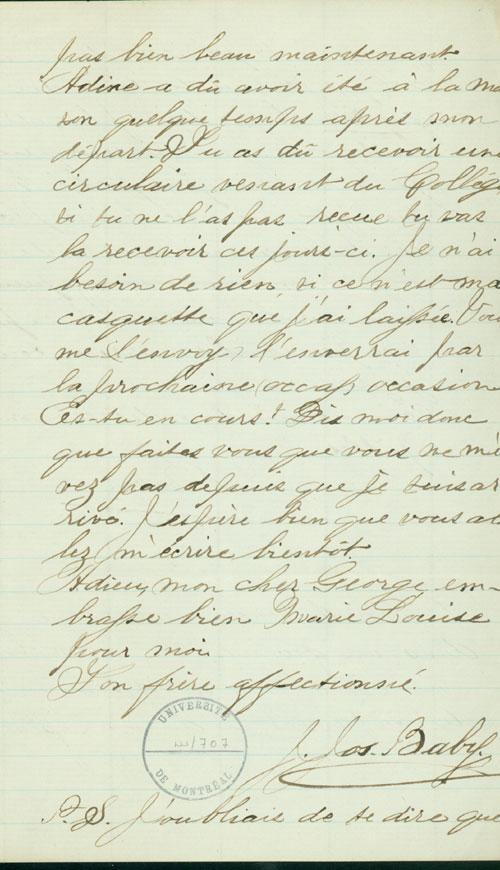 pas bien beau maintenant.
Adine a dû avoir été à la mai
son quelque temps après mon
départ. Tu as dû recevoir une
circulaire venant du Collèg
si tu ne l'as pas recue tu vas
la recevoir ces jours-ci. Je n'ai
besoin de rien si ce n'est ma
casquette que j'ai laissée. Vou
me l'envoy) l'enverrai par
la prochaine (occas) occasion
Es-tu en cours? Dis moi donc
que faites vous que vous ne m'é
vez pas depuis que je suis ar
rivé. J'espère bien que vous al
lez m'écrire bientôt.
Adieu, mon cher George, em-
brasse bien Marie Louise
pour moi
Ton frère affectionné.
J. Jos. Baby.
UNIVERSITÉ
/707
DE MONTRÉAL
P.S. J'oubliais de te dire que